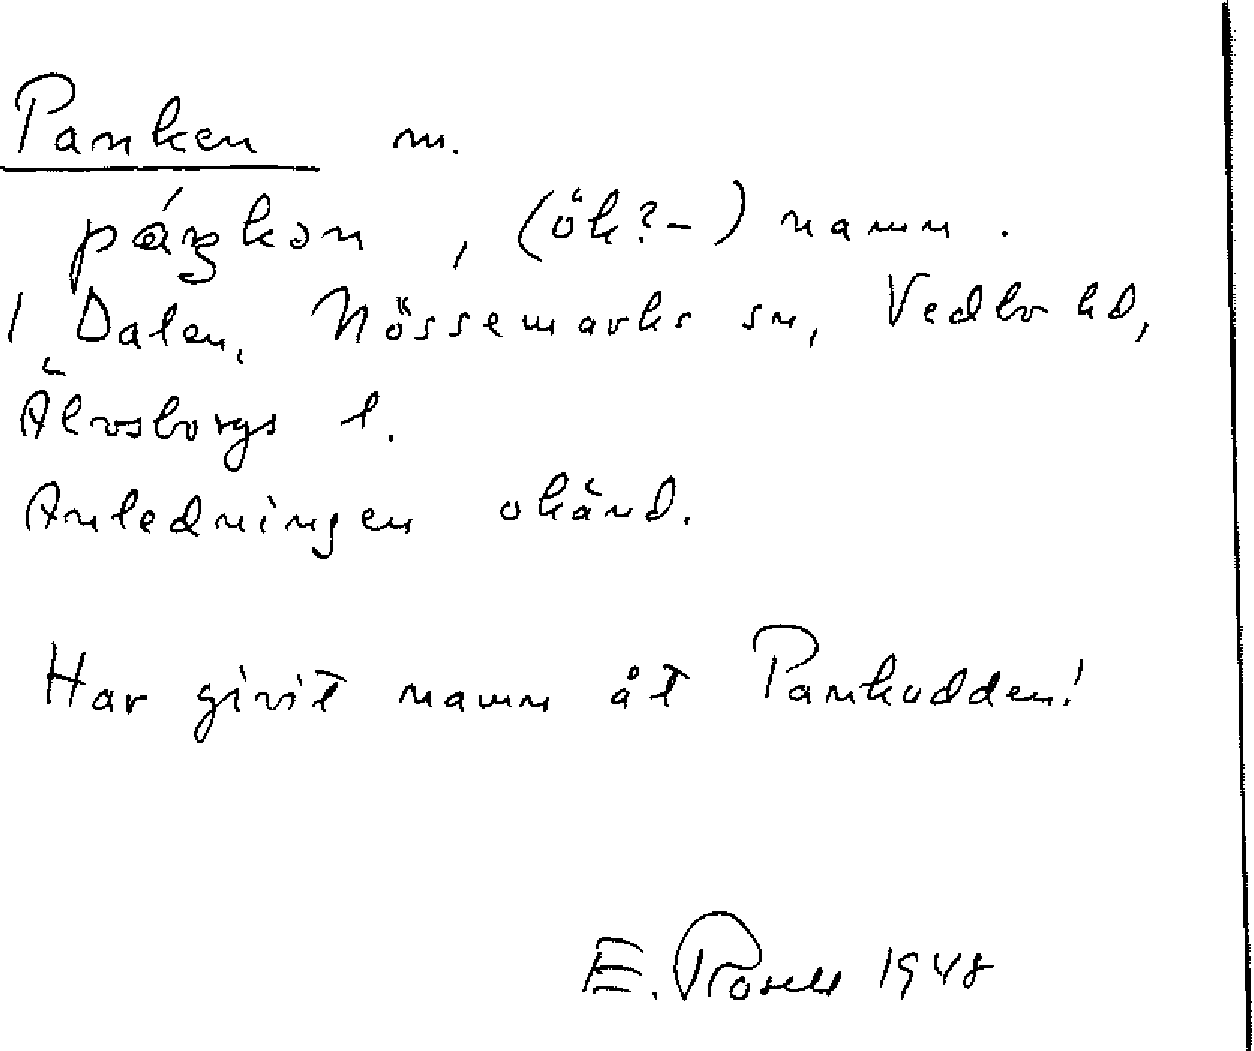 Panken m.
páŋkən, (ök?-) namn.
I Dalen, Nössemarks sn, Vedbo hd,
Älvsborgs l.
Anledningen okänd.
Har givit namn åt Pankudden!
E. Rosell 1948